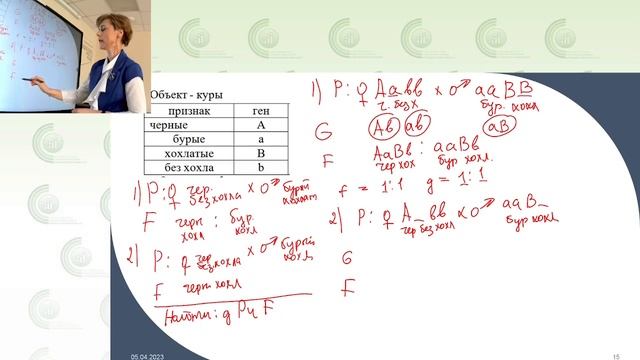 Объект - куры
признак ген
черные A
бурые a
хохлатые B
без хохла b
1) P: ♀ чер. без хохла × ♂ бурый хохлат
F черн хохл : бур. хохл
2) P: ♀ чер без хохла × ♂ бурый хохл
F черн хохл
Найти: g P и F
1) P: ♀ Aabb × ♂ aaBB
ч. без х бур. хохл
G Ab ab aB
F AaBb : aaBb
чер хох бур хохл.
f = 1:1 g = 1:1
2) P: ♀ A_bb × ♂ aaB_
чер без хохл бур хохл
G
F
05.04.2023
15